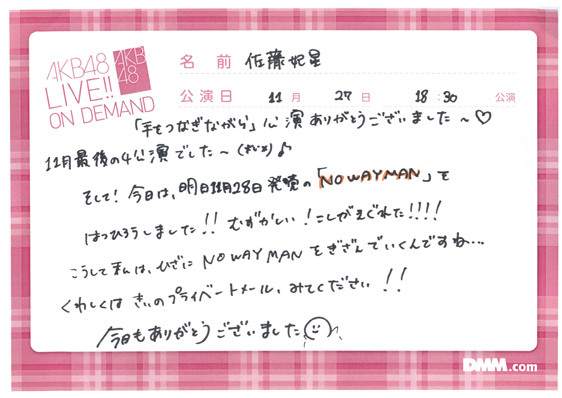 AKB48
LIVE!!
ON DEMAND
AKB
48
名 前 佐藤妃星
公演日 11月 27日 18:30 公演
「手をつなぎながら」公演ありがとうございました～♡
11月最後の4公演でした～(ﾟｪﾟ)♪
そして!今日は、明日11月28日発売の「NO WAY MAN」を
はつひろうしました!!むずかしい!こしがえぐれた!!!!
こうして私は、ひざに NO WAY MAN をきざんでいくんですね…
くわしくは きぃのプライベートメール、みてください!!
今日もありがとうございました
DMM.com